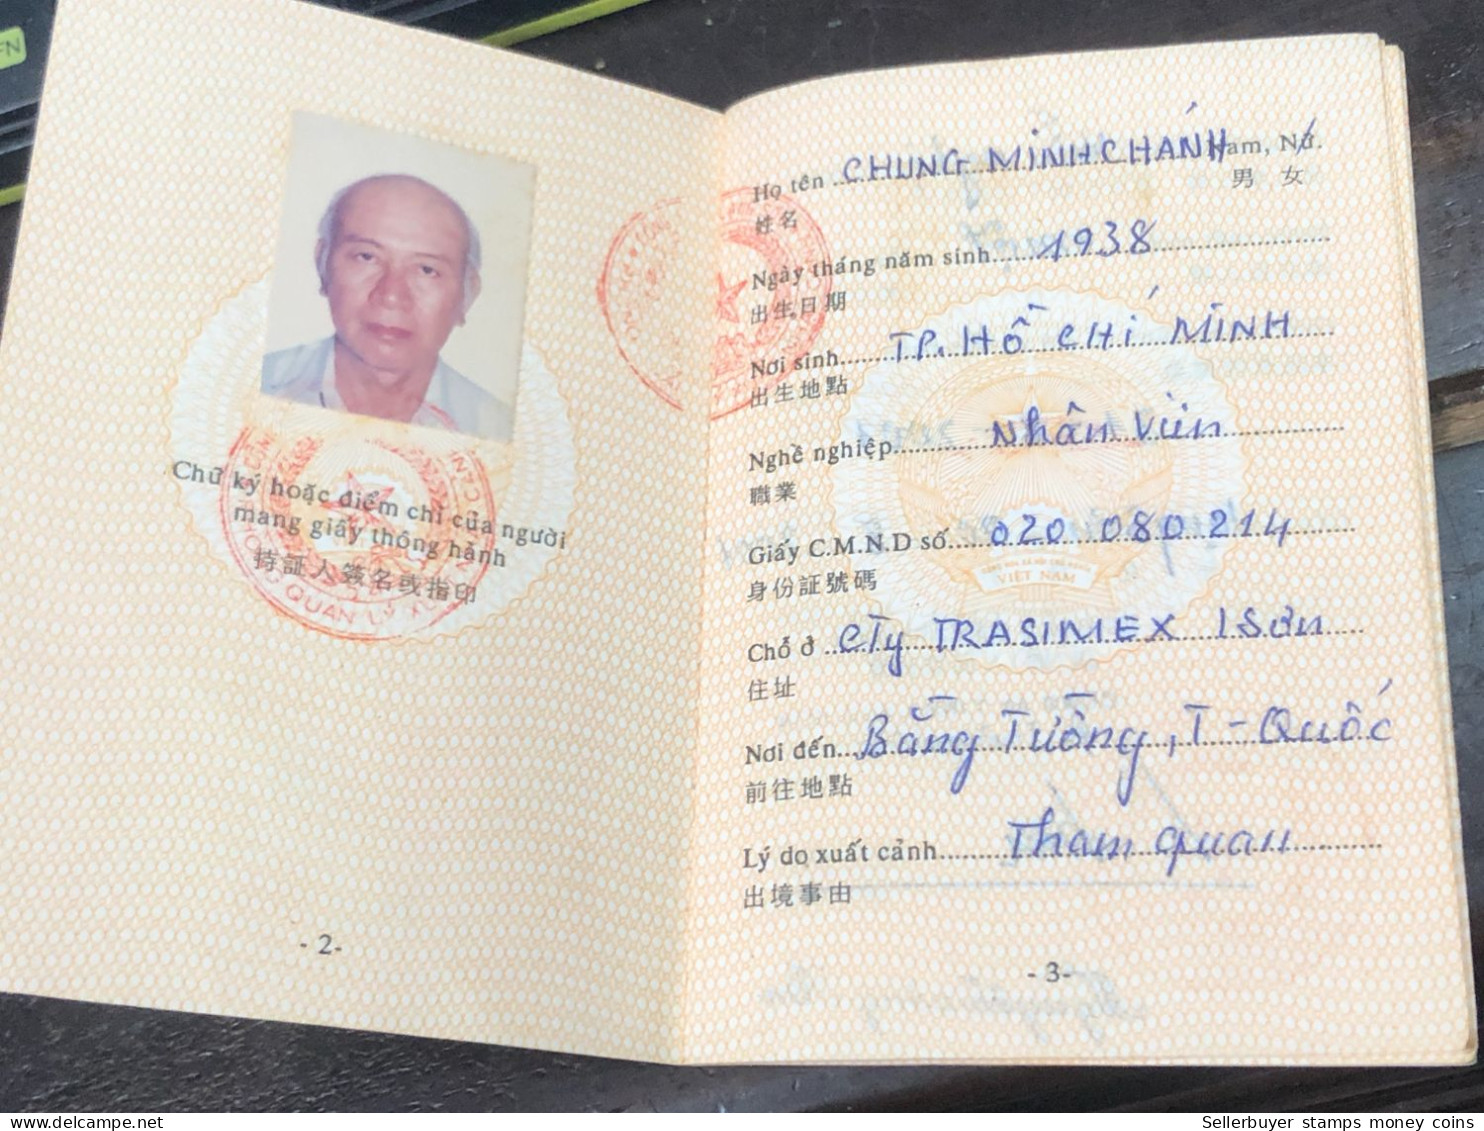 FN
Chữ ký hoặc điểm chỉ của người
mang giấy thông hành
持証人簽名或指印
QUẢN LÝ XU
- 2-
Họ tên CHUNG MINH CHÁNH Nam, Nữ.
姓名 男 女
Ngày tháng năm sinh 1938
出生日期
Nơi sinh TP. HỒ CHÍ MINH
出生地點
Nghề nghiệp Nhân Viên
職業
Giấy C.M.N.D số 020 080 214
身份証號碼
VIỆT NAM
Chỗ ở CTy TRASIMEX LSơn
住址
Nơi đến Bằng Tường, T-Quốc
前往地點
Lý do xuất cảnh Tham quan
出境事由
- 3-
Sellerbuyer stamps money coins